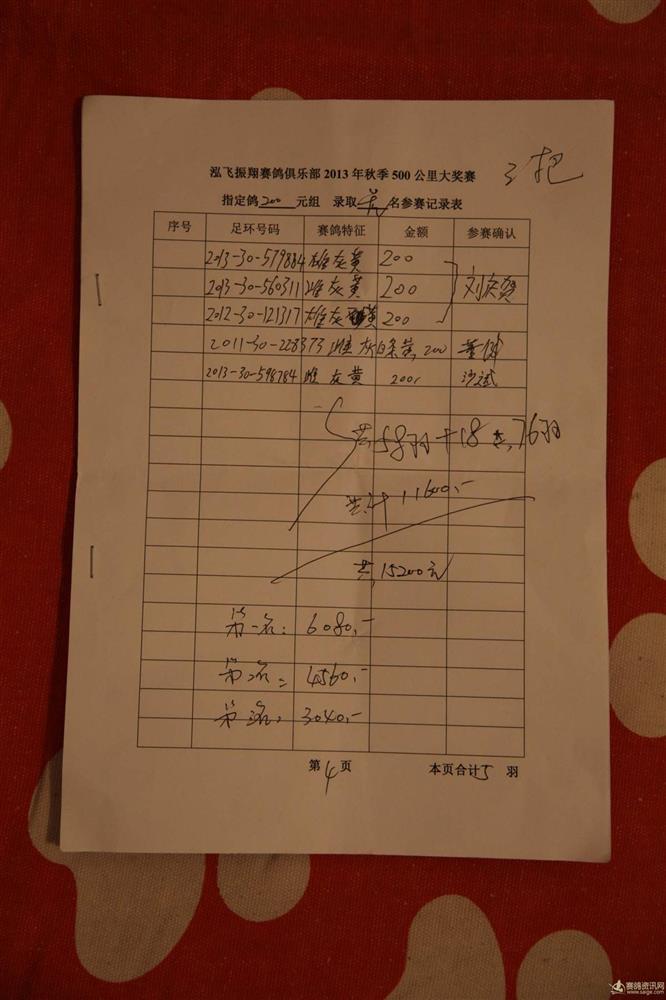 泓飞振翔赛鸽俱乐部 2013 年秋季 500 公里大奖赛
3把
指定鸽 200 元组 录取 名参赛记录表
序号 足环号码 赛鸽特征 金额 参赛确认
2013-30-579884 雄 灰黄 200
2013-30-560311 雌 灰黄 200 刘庆贺
2012-30-121317 雄 灰 黄 200
2011-30-228373 雌 灰白条黄 200
2013-30-598784 雌 灰黄 200
共58羽+18 共76羽
共计11600.-
共15200元
第一名:6080.-
第二名:4560.-
第三名:3040.-
第 4 页 本页合计 5 羽
赛鸽资讯网
www.saige.com